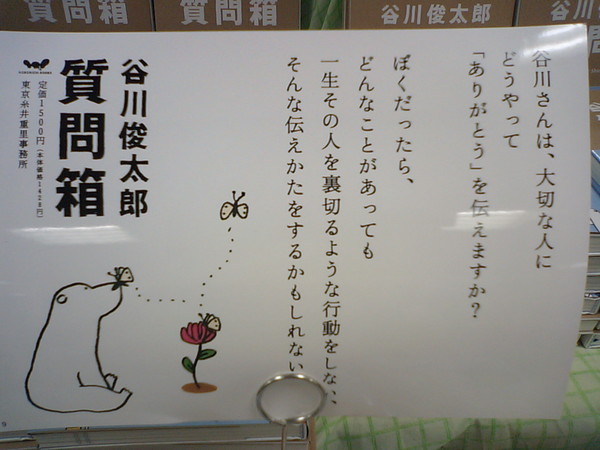 質問箱
質問箱
谷川俊太郎
谷川さんは、大切な人に
どうやって
「ありがとう」を伝えますか?
ぼくだったら、
どんなことがあっても
一生その人を裏切るような行動をしない、
そんな伝えかたをするかもしれない
谷川俊太郎
質問箱
定価1500円(本体価格1428円)
東京糸井重里事務所